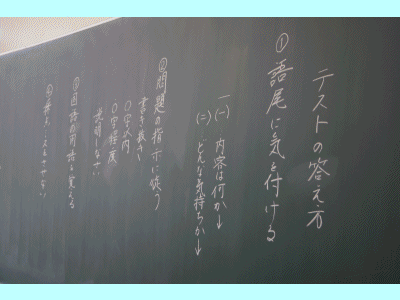 テストの答え方
①語尾に気を付ける
一(一) 内容は何か↓
(二) どんな気持ちか↓
②問題の指示に従う
書き抜き
〇字以内
〇字程度
説明しなさい
③国語の用語を覚える